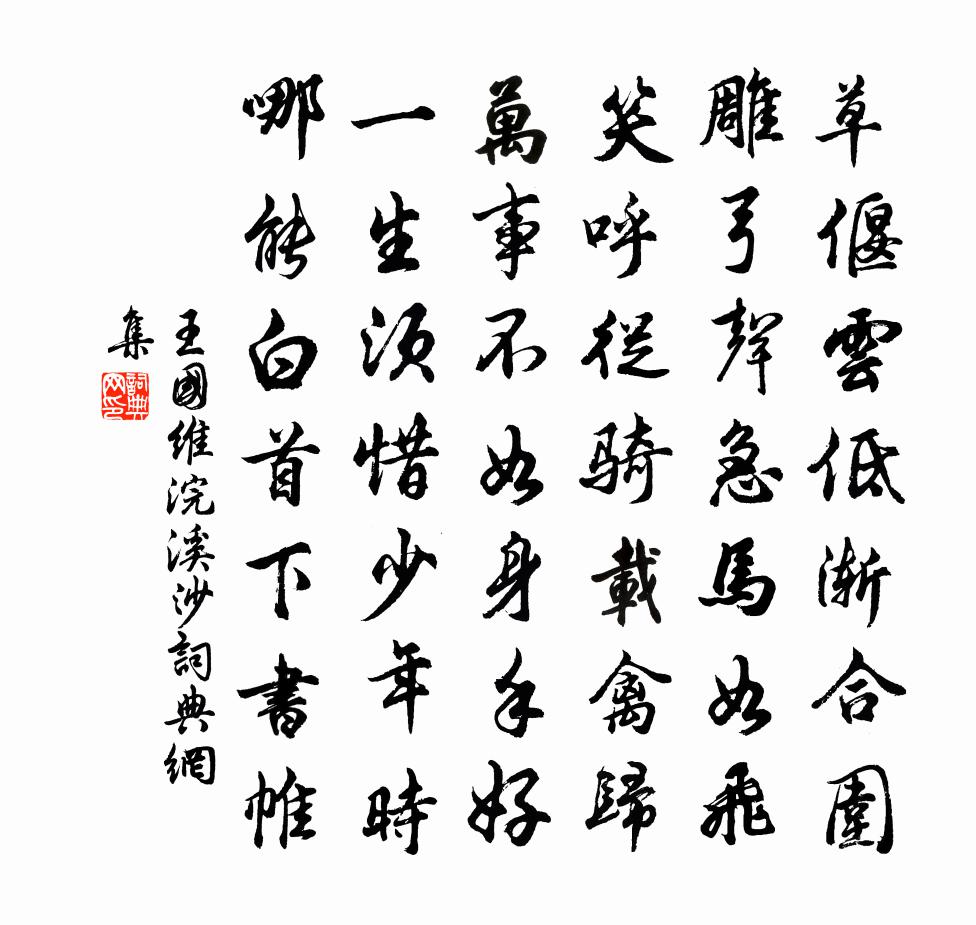 草偃雲低漸合圍
雕弓聲急馬如飛
笑呼從騎載禽歸
萬事不如身手好
一生須惜少年時
哪能白首下書帷
王國維浣溪沙詞典網
集
詞典
网印